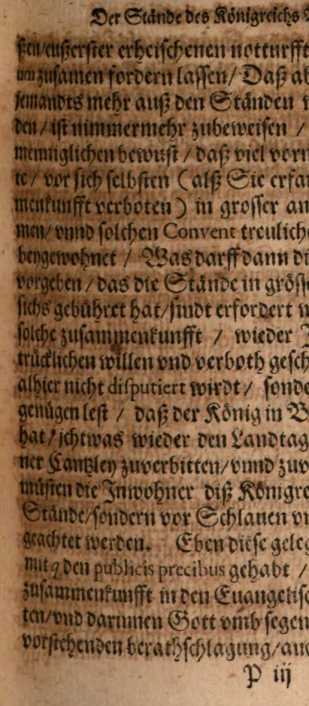 Der Stände des Königreichs
sten/eusserster erheischenen notturfft
zusamen fordern lassen/ Daß
jemandts mehr auß den Ständen
den/ ist nimmermehr zubeweisen /
menniglichen bewust / daß viel
te/ vor sich selbsten (alß Sie
menkunfft verboten) in grosser
men/ vnnd solchen Convent
beygewohnet / Was darff dann
vorgeben/ das die Stände in
sichs gebühret hat/ sindt erfordert
solche zusammenkunfft / wieder
trücklichen willen vnd verboth
alhier nicht disputiert wirdt/
genügen lest / daß der König in
hat/ ichtwas wieder den
ner Cantzley zuverbitten/ vnnd
müsten die Inwohner diß
Stände/ sondern vor Schlauen
geachtet werden. Eben diese
mit den publicis precibus gehabt /
zusammenkunfft in den
ten/ vnd darinnen Gott vmb
vorstehenden berathschlagung/
P iij